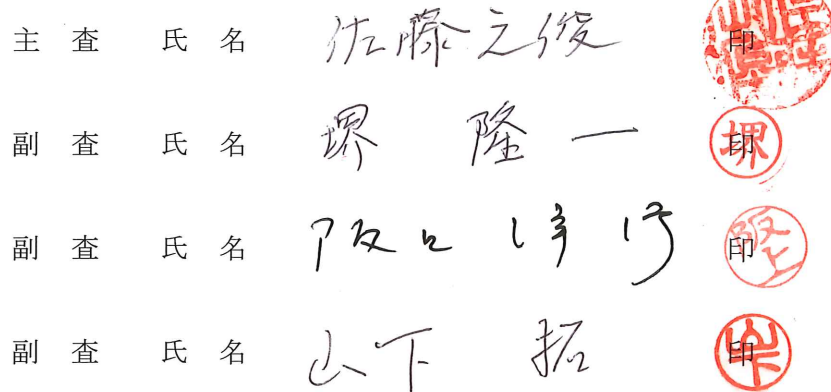 主査 氏名 佐藤之俊 印
副査 氏名 堺 隆一 印 堺
副査 氏名 阪上 印 阪上
副査 氏名 山下 拓 印 山下